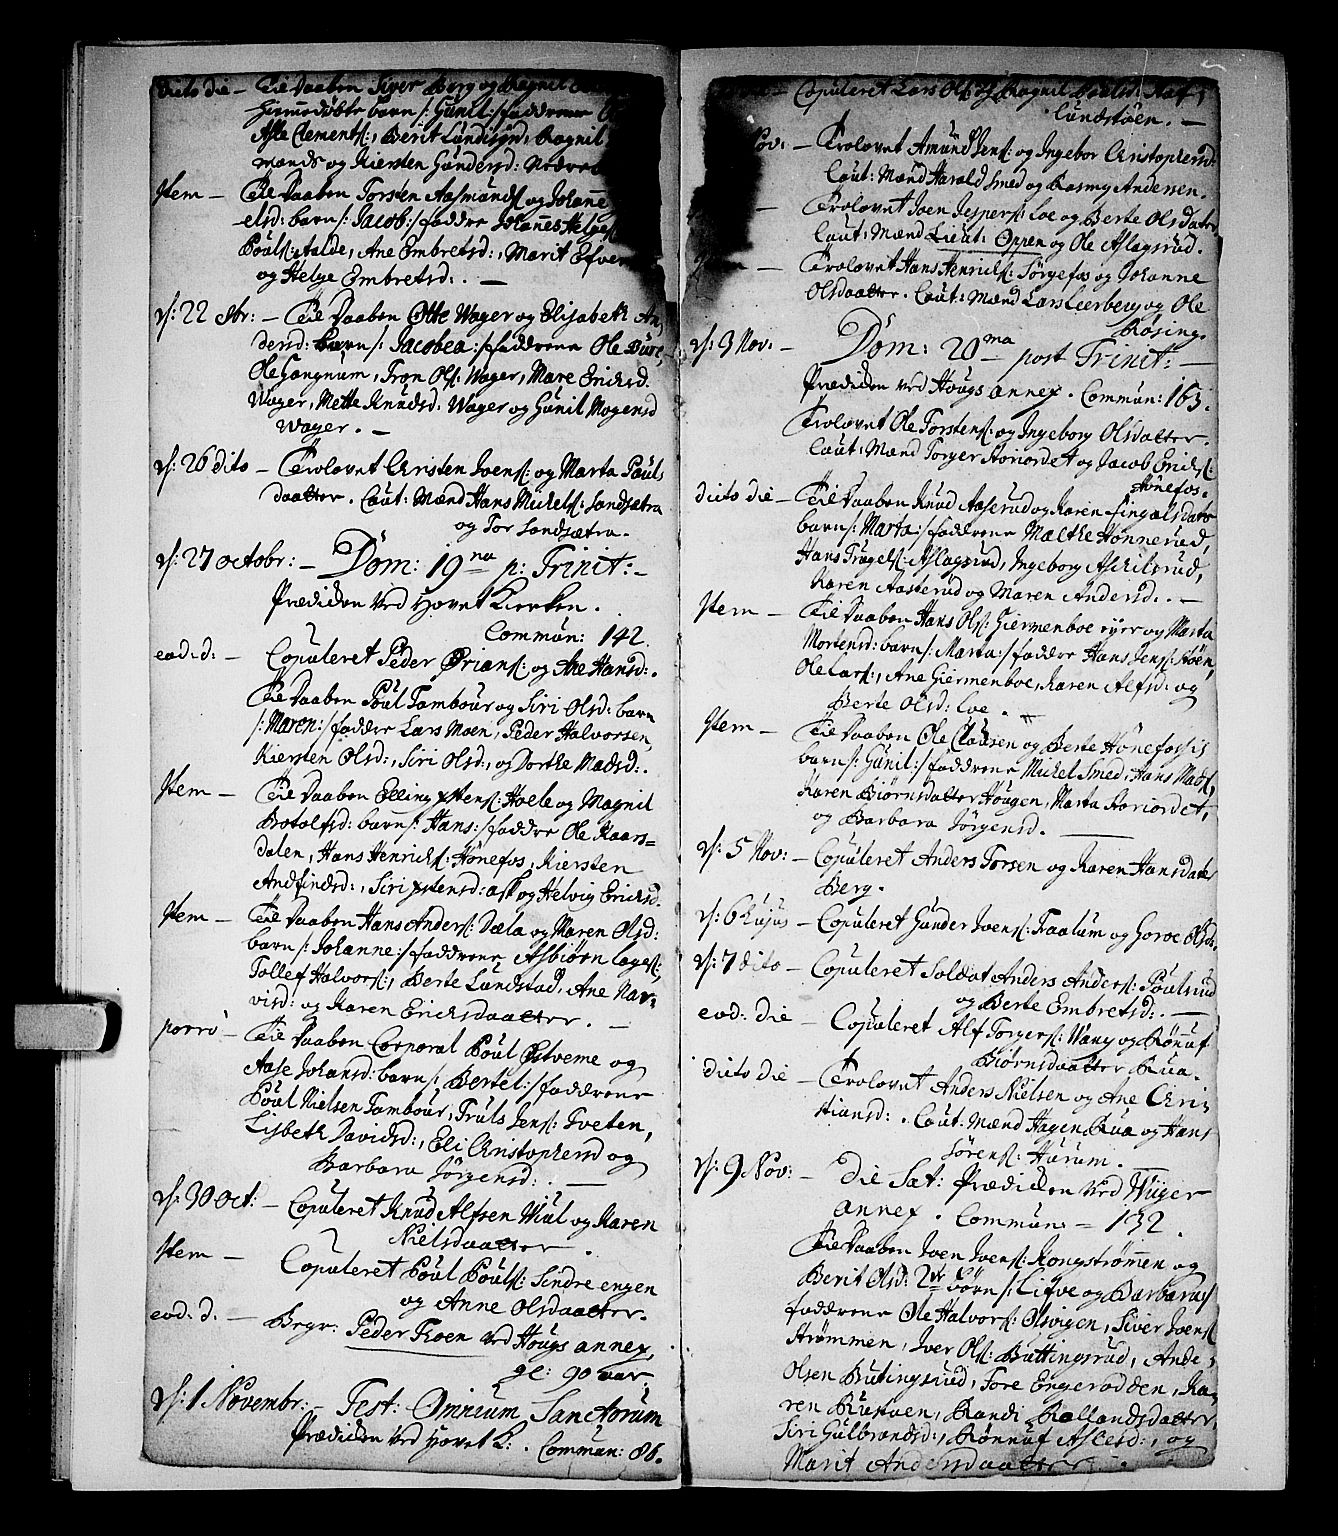 dicto die – Til Daaben Siver Berg og Ragnil
hiemmedøbte barn /: Gunil :/ faddrene
Asle Clements:, Berit Lundisyn, Ragnil
mands og Kiersten Gundersd:
Item – Til Daaben Torsten Aasmunds: og Johanne
elsd: barn /: Jacob :/ faddre Johannes Helges:
Poul Pouls: Aalde, Ane Embretsd:, Marit Elfver
og Helge Embretsd:. –
d/: 22 8br: – Til Daaben Otte Wager og Elisabeth An,
dersd: barn /: Jacobea :/ faddrene Ole Dure,
Ole Gangnum, Tron Ols: Wager, Mare Ericksd.
Wager, Mette Knudsd: Wager og Gunil Mogensd
Wager. –
d/: 26 dito – Trolovet Christen Ivens: og Marta Pouls
daatter. Caut: Mænd Hans Mickels: Sandsætra
og Tor Sandsætra.
d/: 27 octobr: – Dom: 19na p: Trinit: –
Prædicken ved Hovet Kircken.
Commun: 142.
eod: d: – Copuleret Peder Ørians: og Ane Hansd:.
Til Daaben Poul Tambour og Siri Olsd: barn
/: Maren :/ faddre Lars Moen, Peder Halvorsen,
Kiersten Olsd:, Siri Olsd:, og Dorthe Madsd:.
Item – Til Daaben Elling xstens: Hoele og Magnil
Botolfsd: barn /: Hans :/ faddre Ole Kaars=
dalen, Hans Henricks: Hønefos, Kiersten
Andfindsd:, Siri xstensd: Ask og Helvig Ericksd.
Item – Til Daaben Hans Anders: Dæla og Maren Olsd:
barn /: Johanne :/ faddrene Asbiørn Lages:,
Tollef Halvors:, Berte Lundstad, Ane Nar=
visd: og Karen Ericksdaatter. –
porro – Til Daaben Corporal Poul Østveme og
Aase Johansd: barn /: Bertel :/ faddrene
Poul Nielsen Tambour, Truls Jens: Tveten,
Lisbeth Davidsd:, Eli Christophersd og
Barbara Jørgensd:. –
d/: 30 Oct: – Copuleret Knud Alfsen Wiul og Karen
Nielsdaatter.
Item – Copuleret Poul Pouls: Sindre engen
og Anne Olsdaatter.
eod: d. – Begr: Peder Troen ved Hougs annex,
gl: 90 aar.
d/: 1 Novembr: – Fest: Omnium Sanctorum
Prædicken ved Hovet K:. Commun: 86.
Copuleret Lars Ols: og Ragnil Poulsd:
Lundstøen. –
Nov: – Trolovet Amund Jens: og Ingebor Christophersd:
Caut: Mænd Harald Smed og Rasmus Andersen.
– Trolovet Iven Jespers: Loe og Berte Olsdater
Caut: Mænd Lieut: Oppen og Ole Aslagsrud.
– Trolovet Hans Henricks: Sørgefos og Johanne
Olsdaatter. Caut: Mænd Lars Leerberg og Ole
Røsing.
d/: 3 Nov: – Dom: 20ma post Trinit: –
Prædicken ved Hougs annex. Commun: 163.
Trolovet Ole Torstens: og Ingeborg Olsdatter.
Caut: Mænd Torger Storiordet og Jacob Ericks:
Hønefos.
dicto die – Til Daaben Knud Aaserud og Karen Fingalsdater
barn /: Marta :/ faddrene Melthe Hønnerud,
Hans Trugels: Aslagsrud, Ingeborg Askilsrud,
Karen Aasterud og Maren Andersd:. –
Item – Til Daaben Hans Ols: Giermenboe eyer og Marta
Mortensd: barn /: Marta :/ faddre Hans Jens: Støen,
Ole Lars:, Ane Giermenboe, Karen Alfsd: og
Berte Olsd: Loe.
Item – Til Daaben Ole Clausen og Berte Hønefossis
barn /: Gunil :/ faddrene Mickel Smed, Hans Mads:,
Karen Biørnsdatter Hougen, Marta Storiordet,
og Barbara Jørgensd.
d/: 5 Nov: – Copuleret Anders Torsen og Karen Hansdater
Berg.
d/: 6 hujus – Copuleret Gunder Ivens: Traalum og Goroe Olsdr.
d/: 7 dito – Copuleret Soldat Anders Anders: Poulsrud
og Berte Embretsd:. –
eod: die – Copuleret Alf Torgers: Wang og Rønnof
Biørnsdaatter Rua.
dicto die – Trolovet Anders Nielsen og Ane Chri=
stiansd:. Caut: Mænd Hagen Rua og Hans
Sørens: Harum.
d/: 9 Nov: – die Sat: Prædicken ved Wiiger
annex. Commun: – 132.
Til Daaben Iven Ivens: Kongstrømmen og
Berit Olsd: 2de børn /: Lifve og Barbara :/
faddrene Ole Halvors: Olsvigen, Siver Ivens:
Strømmen, Iver Ols: Buttingsrud, Ande
Olsen Butingsrud, Tore Engerødden, Ka=
ren Rustoen, Randi Rallandsdatter,
Siri Gulbrandsd:, Rønnof Aslesd:, og
Marit Andersdaatter.